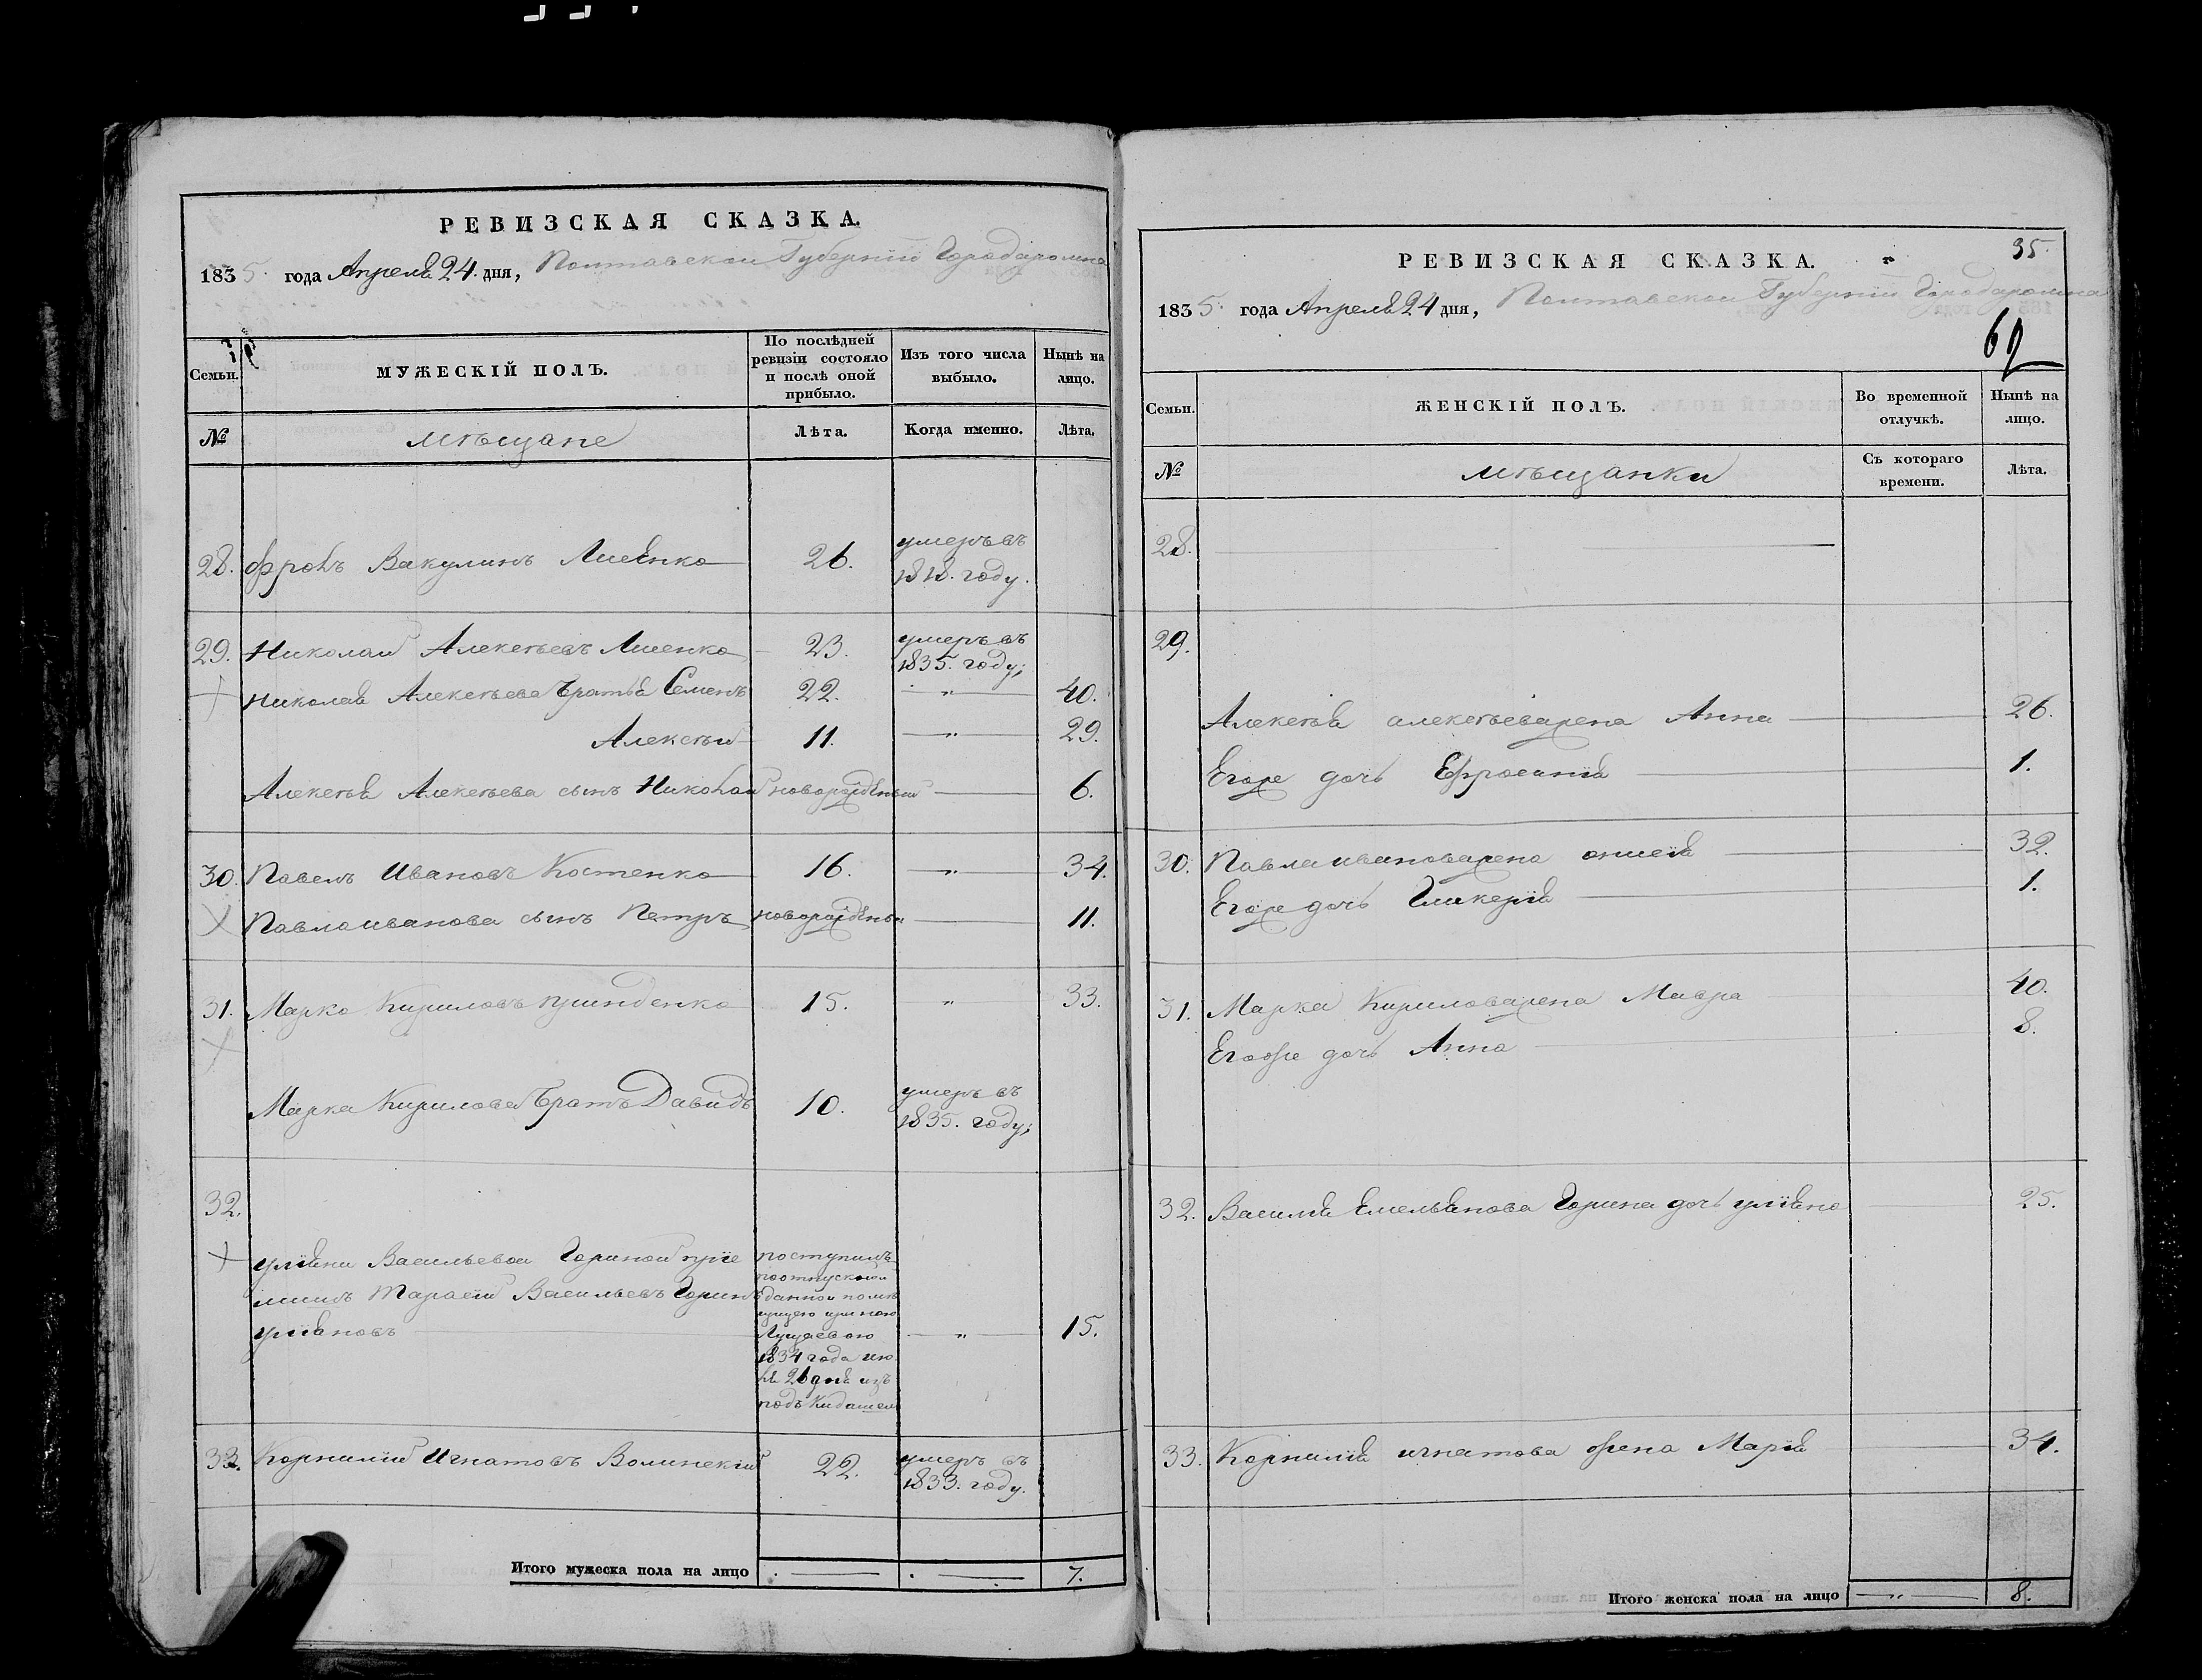 РЕВИЗСКАЯ СКАЗКА.
1835. года Апреля 24. дня, Полтавской Губернии Города Ромна
Семьи.
МУЖЕСКІЙ ПОЛЪ.
По послѣдней ревизіи состояло и послѣ оной прибыло.
Изъ того числа выбыло.
Нынѣ на лицо.
№
мѣщане
Лѣта.
Когда именно.
Лѣта.
28. Фролъ Вакулинъ Лисенко 26. умеръ въ
1818. году.
29. Николай Алексѣевъ Лисенко 23. умеръ въ
1835. году;
Николая Алексѣева братья Семенъ 22. " 40.
Алексѣй 11. " 29.
Алексѣя Алексѣева сынъ Николай новорожденый 6.
30. Павелъ Ивановъ Костенко 16. " 34.
Павла иванова сынъ Петръ новорожденый 11.
31. Марко Кириловъ 15. " 33.
Марка Кирилова братъ Давидъ 10. умеръ въ
1835. году;
32.
улияни Васильевой Гориной прие
мишъ Тарасий Васильевъ Горинъ
улияновъ " 15.
поступилъ
по отпускной
данной помѣ
щицею
1834 года ию
ля 26 дня изъ
подъ
33. Корнилий Игнатовъ Волинский 22. умеръ въ
1833. году.
Итого мужеска пола на лицо 7.
35.
РЕВИЗСКАЯ СКАЗКА.
1835. года Апреля 24 дня, Полтавской Губернии Города Ромна
69
Семьи.
ЖЕНСКІЙ ПОЛЪ.
Во временной отлучкѣ.
Нынѣ на лицо.
№
мѣщанки
Съ котораго времени.
Лѣта.
28.
29.
Алексѣя алексѣева жена Анна 26.
Егоже дочь Ефросинія 1.
30. Павла иванова жена 32.
Егоже дочь Гликерія 1.
31. Марка Кирилова жена Мавра 40.
Егоже дочь Анна 8.
32. Василія Емельянова Горина дочь уліяна 25.
33. Корнилія игнатова жена Марія 34.
Итого женска пола на лицо " 8.